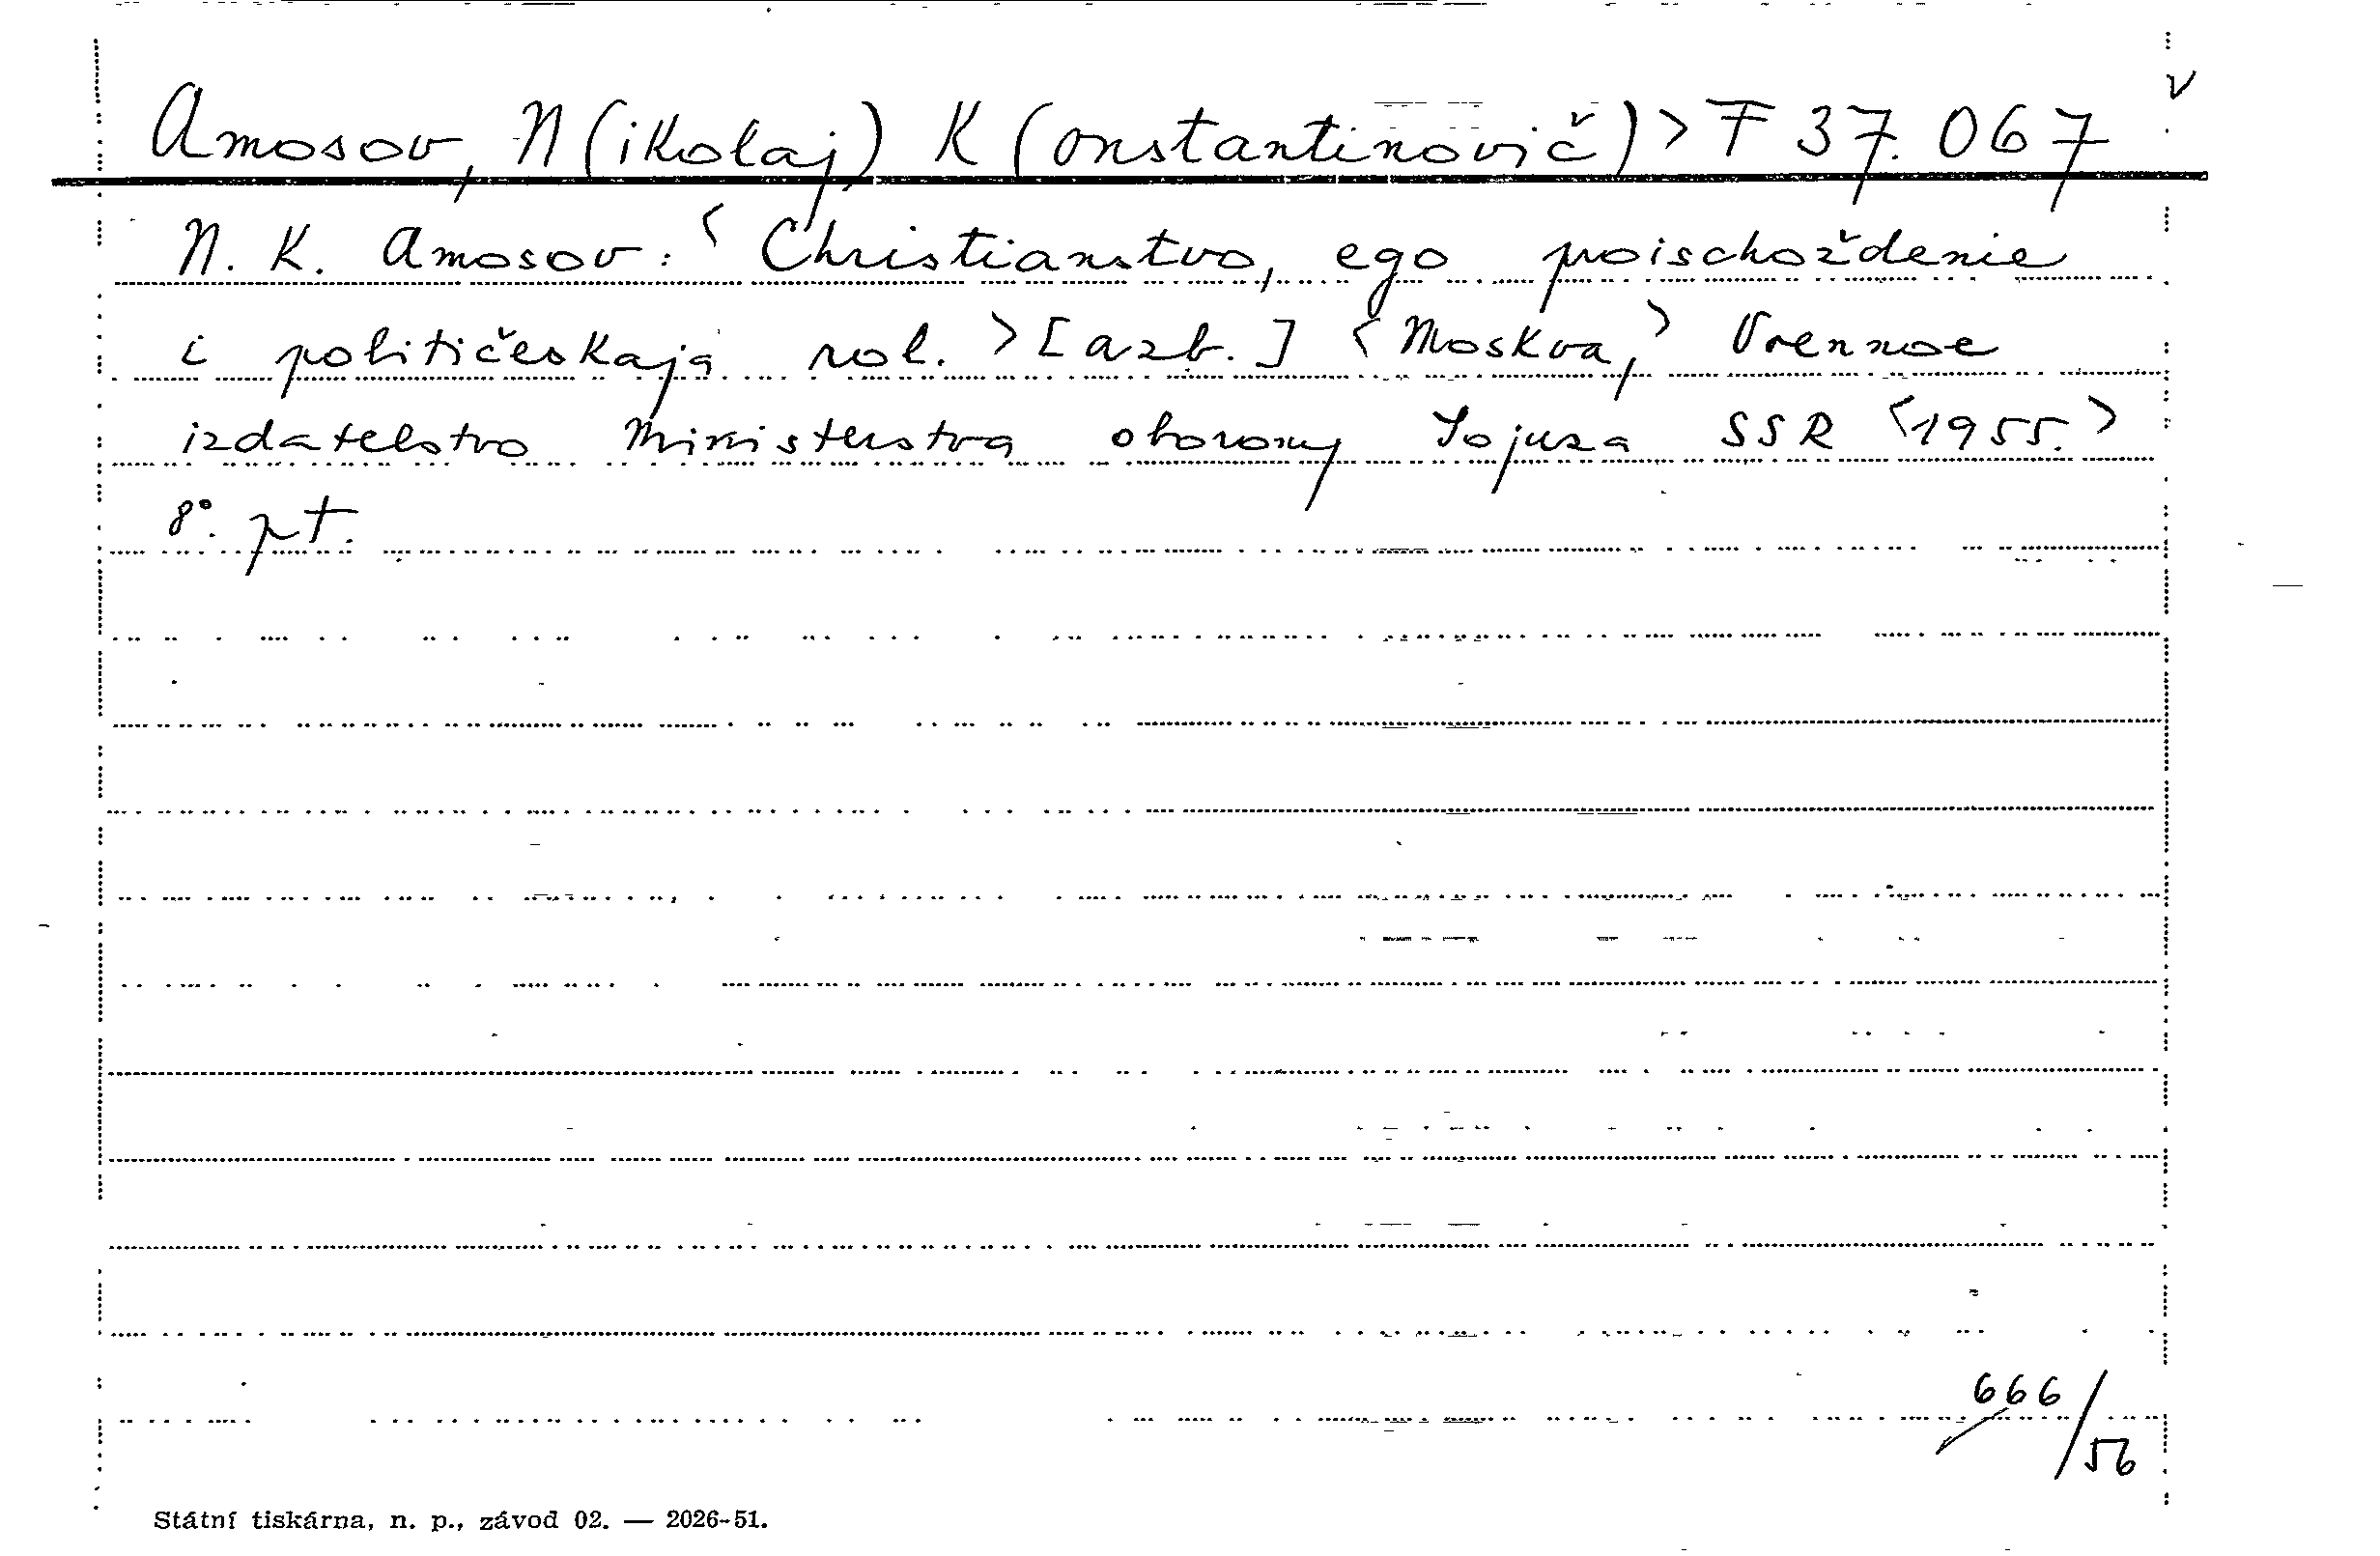 Amosov, N(ikolaj) K(onstantinovič)> F 37.067
N. K. Amosov: <Christianstvo, ego proischoždenie
i političeskaja rol. >[azb.] <Moskva,> Voennoe
izdatelstvo Ministerstva oborony Sojuza SSR <1955.>
8°. pt.
666/56
Státní tiskárna, n. p., závod 02. — 2026-51.